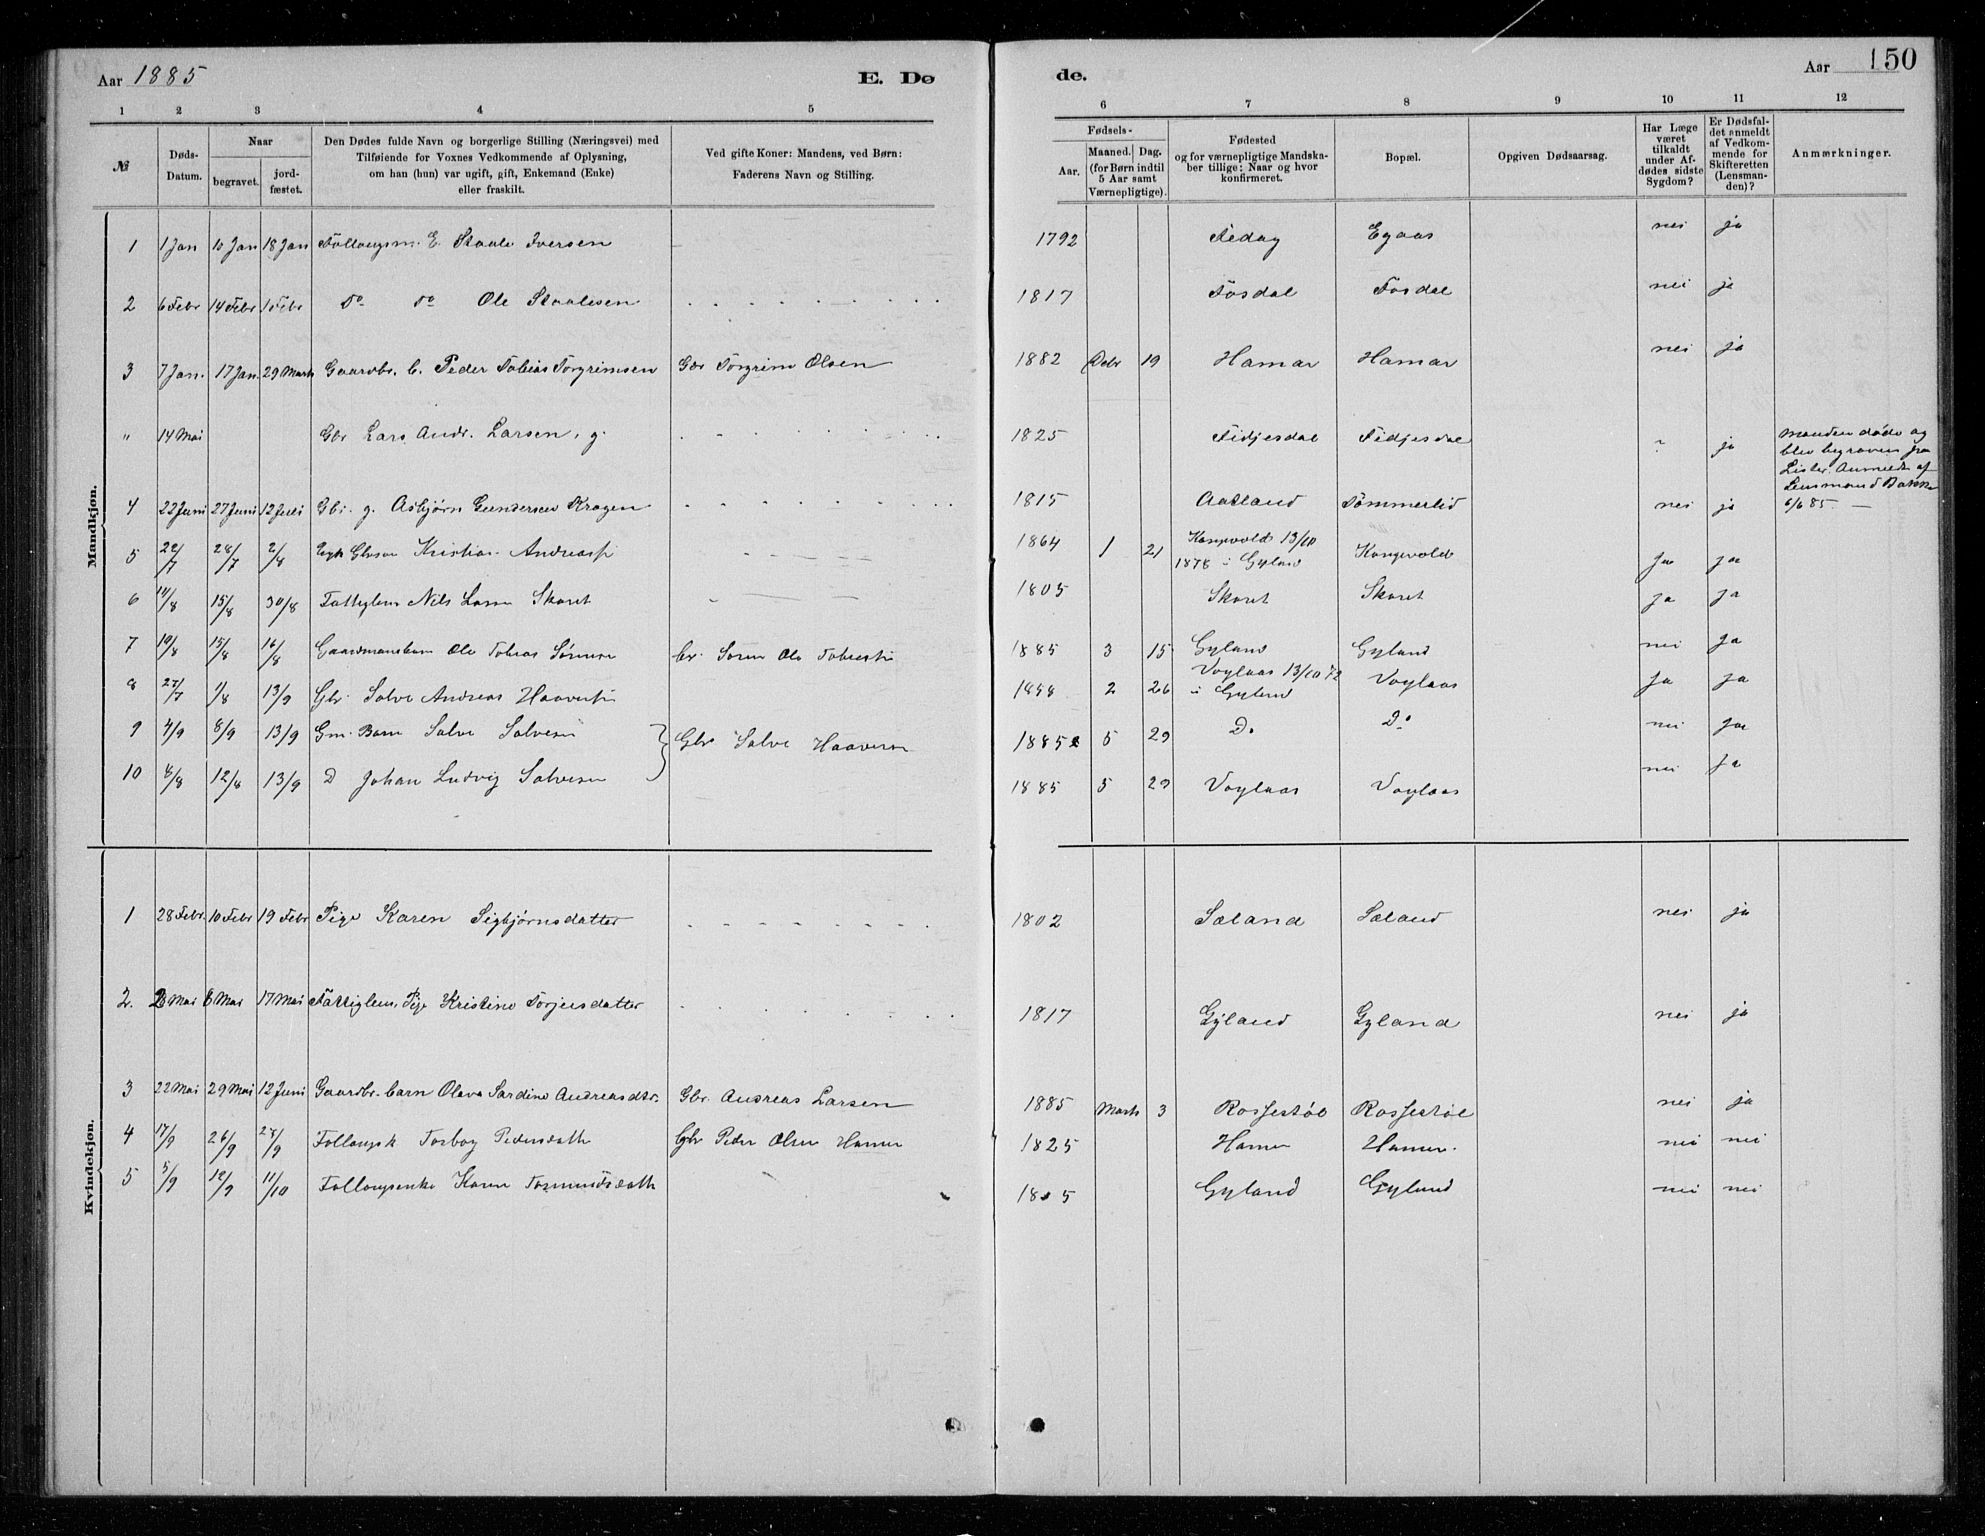 Aar 1885 E. Dø de. Aar 150
1 2 3 4 5 6 7 8 9 10 11 12
№ Døds-Datum. Naar begravet. jordfæstet. Den Dødes fulde Navn og borgerlige Stilling (Næringsvei) med Tilføiende for Voxnes Vedkommende af Oplysning, om han (hun) var ugift, gift, Enkemand (Enke) eller fraskilt. Ved gifte Koner: Mandens, ved Børn: Faderens Navn og Stilling. Fødsels- Aar. Maaned. Dag. (for Børn indtil 5 Aar samt Værnepligtige). Fødested og for værnepligtige Mandskaber tillige: Naar og hvor konfirmeret. Bopæl. Opgiven Dødsaarsag. Har Læge været tilkaldt under Afdødes sidste Sygdom? Er Dødsfaldet anmeldt af Vedkommende for Skifteretten (Lensmanden)? Anmærkninger.
Mandkjøn.
1 1 Jan 10 Jan 18 Jan Follaugsm. E. Staale Iversen 1792 Fedog Egaas nei ja
2 6 Febr 14 Febr Febr Do do Ole Staalesen 1817 Fosdal Fosdal nei ja
3 7 Jan. 17 Jan. 29 Marts Gaardbr. b. Peder Tobias Torgrimsen Gbr Torgrim Olsen 1882 Debr 19 Hamar Hamar nei ja
" 14 Mai Gbr Lars Andr. Larsen, g. 1825 Fidjesdal Fidjesdal ? ja Manden døde og
blev begraven fra
Lister. Anmeldt af
Lensmand
6/6 85. —
4 22 Juni 27 Juni 12 Juli Gbr. g. Asbjørn Gundersen Kragen 1815 Aatland Tömmerlid nei ja
5 22/7 28/7 2/8 Kristian Andreass 1864 1 21 Kongevold 13/10
1878 i Gyland Kongevold ja ja
6 11/8 15/8 30/8 Fattiglem Nils Larsen Skoret 1805 Skoret Skoret ja ja
7 10/8 15/8 16/8 Gaardmansbarn Ole Tobias Sörensen Gbr. Soren Ole Tobiass 1885 3 15 Gyland Gyland nei ja
8 27/7 1/8 13/9 Gbr. Salve Andreas Haavers 2 26 Voglaas 13/10 72
i Gyland Voglaas ja ja
9 4/9 8/9 13/9 Gm. Barn Salve Salvesen Gbr Salve Haaversen 1885 5 29 Do Do nei ja
10 8/8 12/8 13/9 D Johan Ludvig Salvesen 1885 5 29 Voglaas Voglaas nei ja
Kvindekjøn.
1 28 Febr. 10 Febr 19 Febr Pige Karen Sigbjørnsdatter 1802 Sæland Sæland nei ja
2. Mai 8 Mai 17 Mai Fattiglem, Pige Kristine Torjusdatter 1817 Gyland Gyland nei ja
3 22 Mai 29 Mai 12 Juni Gaardbr. barn Olava Sardine Andreasdtr. Gbr. Andreas Larsen 1885 Marts 3 Rossestøl Rossestøl nei ja
4 17/9 26/9 27/9 Follaugsk Torbog Pedersdatt Gbr Peder Olsen Hamar 1825 Hamar Hamar. nei nei
5 5/9 12/9 11/10 Follaugsenke Karen Tormundsdatt 1805 Gyland Gyland nei nei